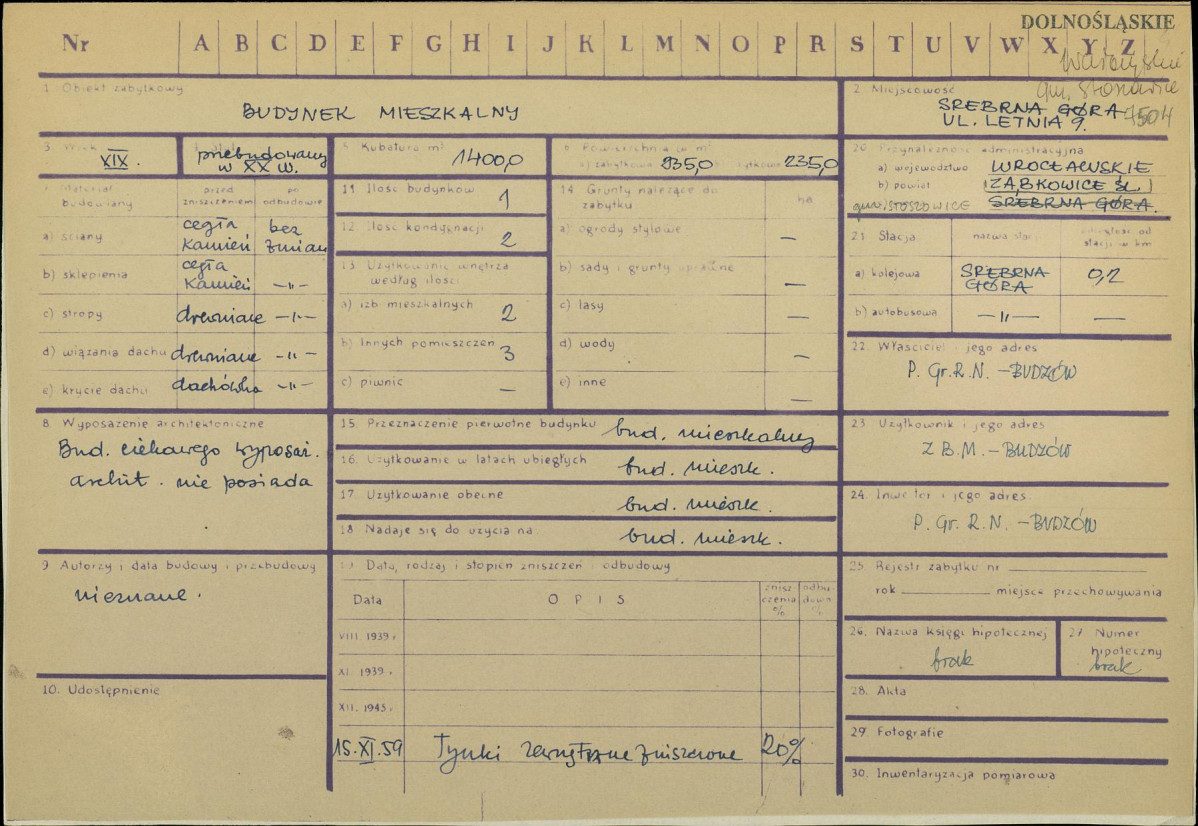 DOLNOŚLĄSKIE
Nr A B C D E F G H I J K L M N O P R S T U V W X Y Z
gm. Stoszowice
1. Obiekt zabytkowy
BUDYNEK MIESZKALNY
2. Miejscowość
SREBRNA GÓRA
UL. LETNIA 9.
3. Wiek
XIX.
przebudowany
w XX w.
5. Kubatura m³
1400,0
6. Powierzchnia w m²
a) zabytkowa 935,0 użytkowa 235,0
20. Przynależność administracyjna
a) województwo WROCŁAWSKIE
b) powiat ZĄBKOWICE ŚL.
gm. STOSZOWICE SREBRNA GÓRA.
7. Materiał budowlany
przed zniszczeniem
po odbudowie
a) ściany cegła kamień bez zmian
b) sklepienia cegła kamień —"—
c) stropy drewniane —"—
d) wiązania dachu drewniane —"—
e) krycie dachu dachówka —"—
11. Ilość budynków 1
12. Ilość kondygnacji 2
13. Użytkowanie wnętrza według ilości
a) izb mieszkalnych 2
b) Innych pomieszczeń 3
c) piwnic —
14. Grunty należące do zabytku
ha
a) ogrody stylowe —
b) sady i grunty uprawne —
c) lasy —
d) wody —
e) inne —
21. Stacja
nazwa stacji
odległość od stacji w km
a) kolejowa SREBRNA GÓRA 0,2
b) autobusowa —"— —
22. Właściciel i jego adres
P. Gr. R. N. – BUDZÓW
8. Wyposażenie architektoniczne
Bud. ciekawego wyposaż.
archit. nie posiada
15. Przeznaczenie pierwotne budynku bud. mieszkalny
16. Użytkowanie w latach ubiegłych bud. mieszk.
17. Użytkowanie obecne bud. mieszk.
18. Nadaje się do użycia na bud. mieszk.
23. Użytkownik i jego adres
Z B. M. – BUDZÓW
24. Inwestor i jego adres
P. Gr. R. N. – BUDZÓW
9. Autorzy i data budowy i przebudowy
nieznane.
10. Udostępnienie
19. Data, rodzaj i stopień zniszczeń i odbudowy
Data
OPIS
zniszczenia %
odbudowa %
VIII. 1939 r.
XI. 1939 r.
XII. 1945 r.
15.XI.59 Tynki zewnętrzne zniszczone 20%
25. Rejestr zabytku nr
rok miejsce przechowywania
26. Nazwa księgi hipotecznej
brak
27. Numer hipoteczny
brak
28. Akta
29. Fotografie
30. Inwentaryzacja pomiarowa